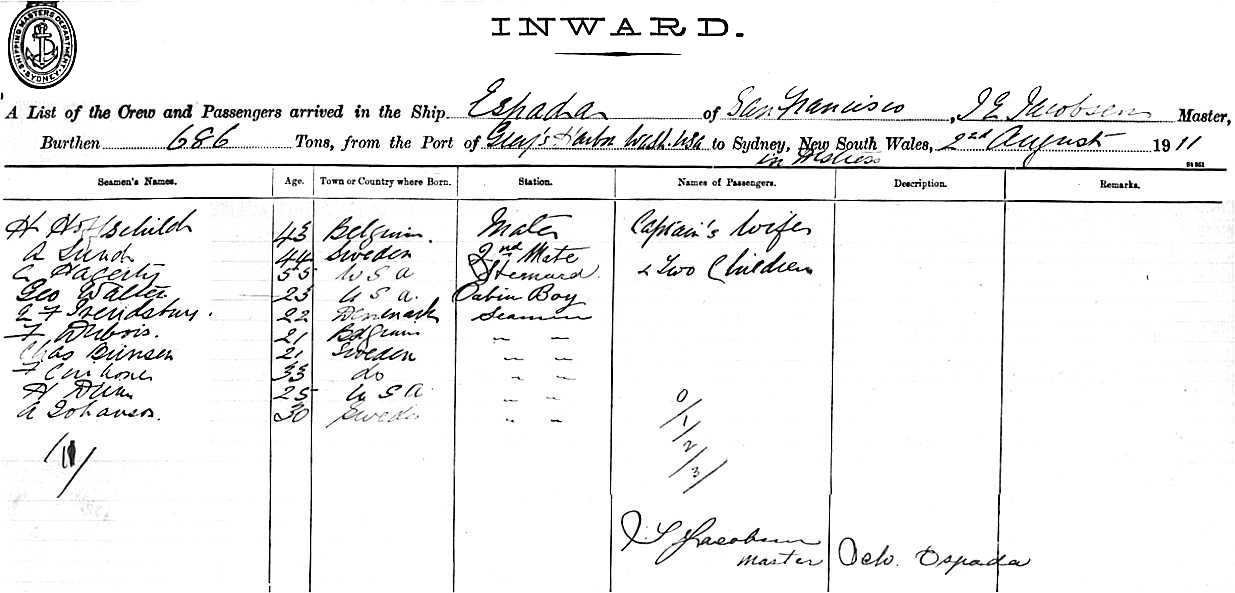 SHIPPING MASTERS DEPARTMENT. SYDNEY
INWARD.
A List of the Crew and Passengers arrived in the Ship Espada of San Francisco, J E Jacobsen Master,
Burthen 686 Tons, from the Port of Grey's Harbor Wash. USA to Sydney, New South Wales, 2nd August 1911
in Distress
Seamen's Names. Age. Town or Country where Born. Station. Names of Passengers. Description. Remarks.
H 43 Belgium. Mate Captain's Wife
A Lund 44 Sweden 2nd Mate
C Hagerty 55 U S A Steward & Two Children
Geo Walter 23 U S A. Cabin Boy
22 Denmark Seamen
F Dubois. 21 Belgium " "
Chas 21 Sweden " "
F 33 do " "
H Dunn 25 U S A " "
A Johanson. 30 Sweden " "
0/1/2/3/
J E Jacobsen
Master Sch. Espada